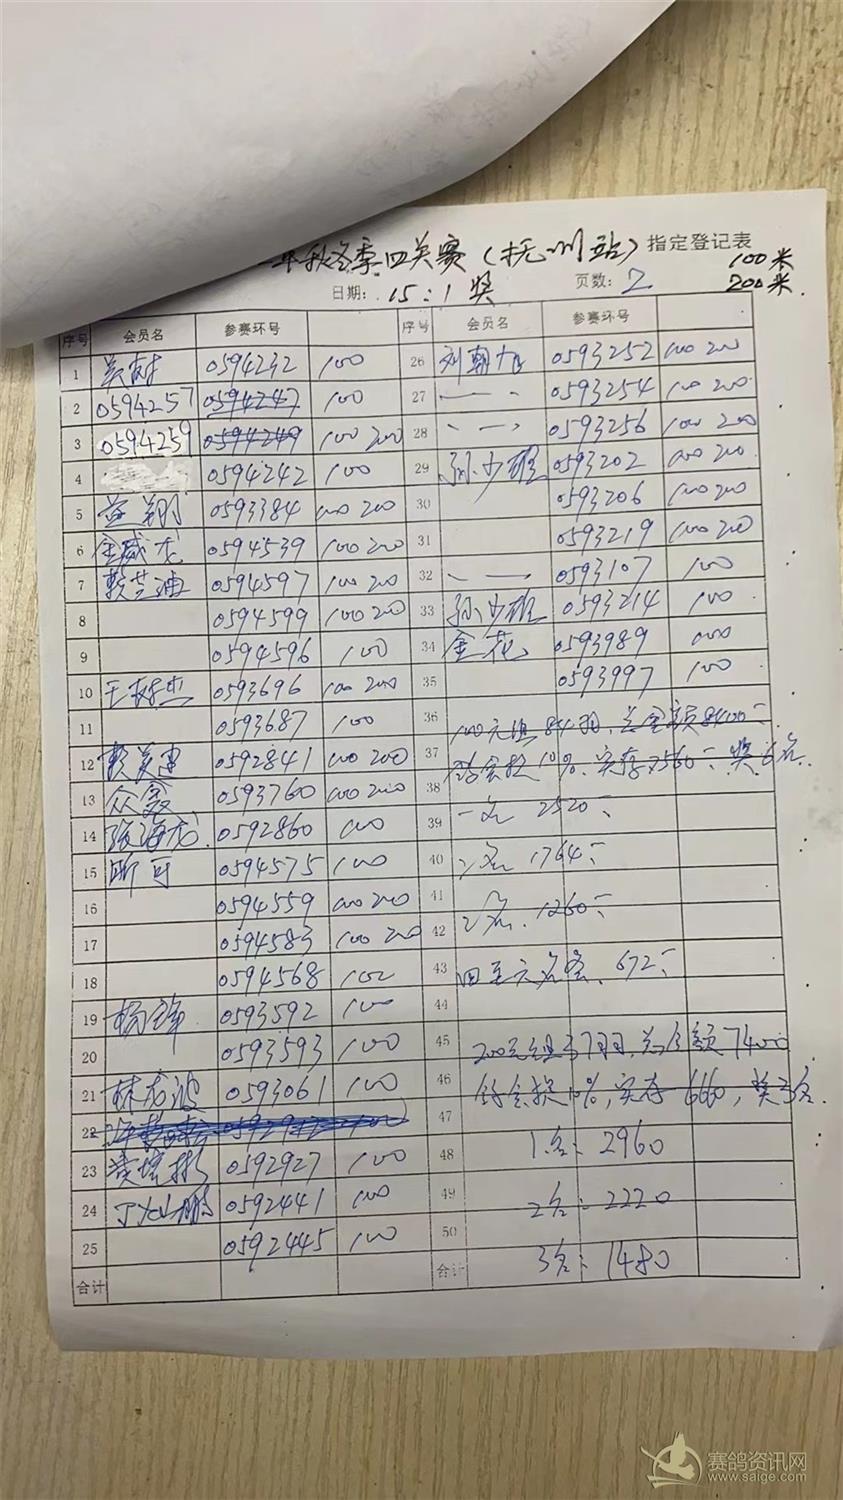 年秋冬季四关赛(抚州站)指定登记表
100米
200米
日期: 15:1奖 页数: 2
序号 会员名 参赛环号 序号 会员名 参赛环号
1 0594232 100
2 0594257 0594247 100
3 0594259 0594249 100 200
4 0594242 100
5 益翔 0593384 100 200
6 金威龙 0594539 100 200
7 0594597 100 200
8 0594599 100 200
9 0594596 100
10 王树杰 0593696 100 200
11 0593687 100
12 0592841 100 200
13 众鑫 0593760 100 200
14 张海龙 0592860 100
15 0594575 100
16 0594559 100 200
17 0594583 100 200
18 0594568 100
19 0593592 100
20 0593593 100
21 林 0593061 100
22
23 0592927 100
24 0592441 100
25 0592445 100
合计
26 刘朝旭 0593252 100 200
27 0593254 100 200
28 0593256 100 200
29 孙少雄 0593202 100 200
30 0593206 100 200
31 0593219 100 200
32 0593107 100
33 孙少雄 0593214 100
34 金花 0593989 100
35 0593997 100
36 100元组84羽,总金额8400元
37 10%,实存7560元 奖6名
38
39 一名 2520元
40 二名 1764元
41
42 三名 1260元
43 四至六名各 672元
44
45 200元组37羽,总金额7400
46 10%,实存6660,奖3名
47
48 1名: 2960
49 2名: 2220
50
合计 3名: 1480
赛鸽资讯网
www.saige.com